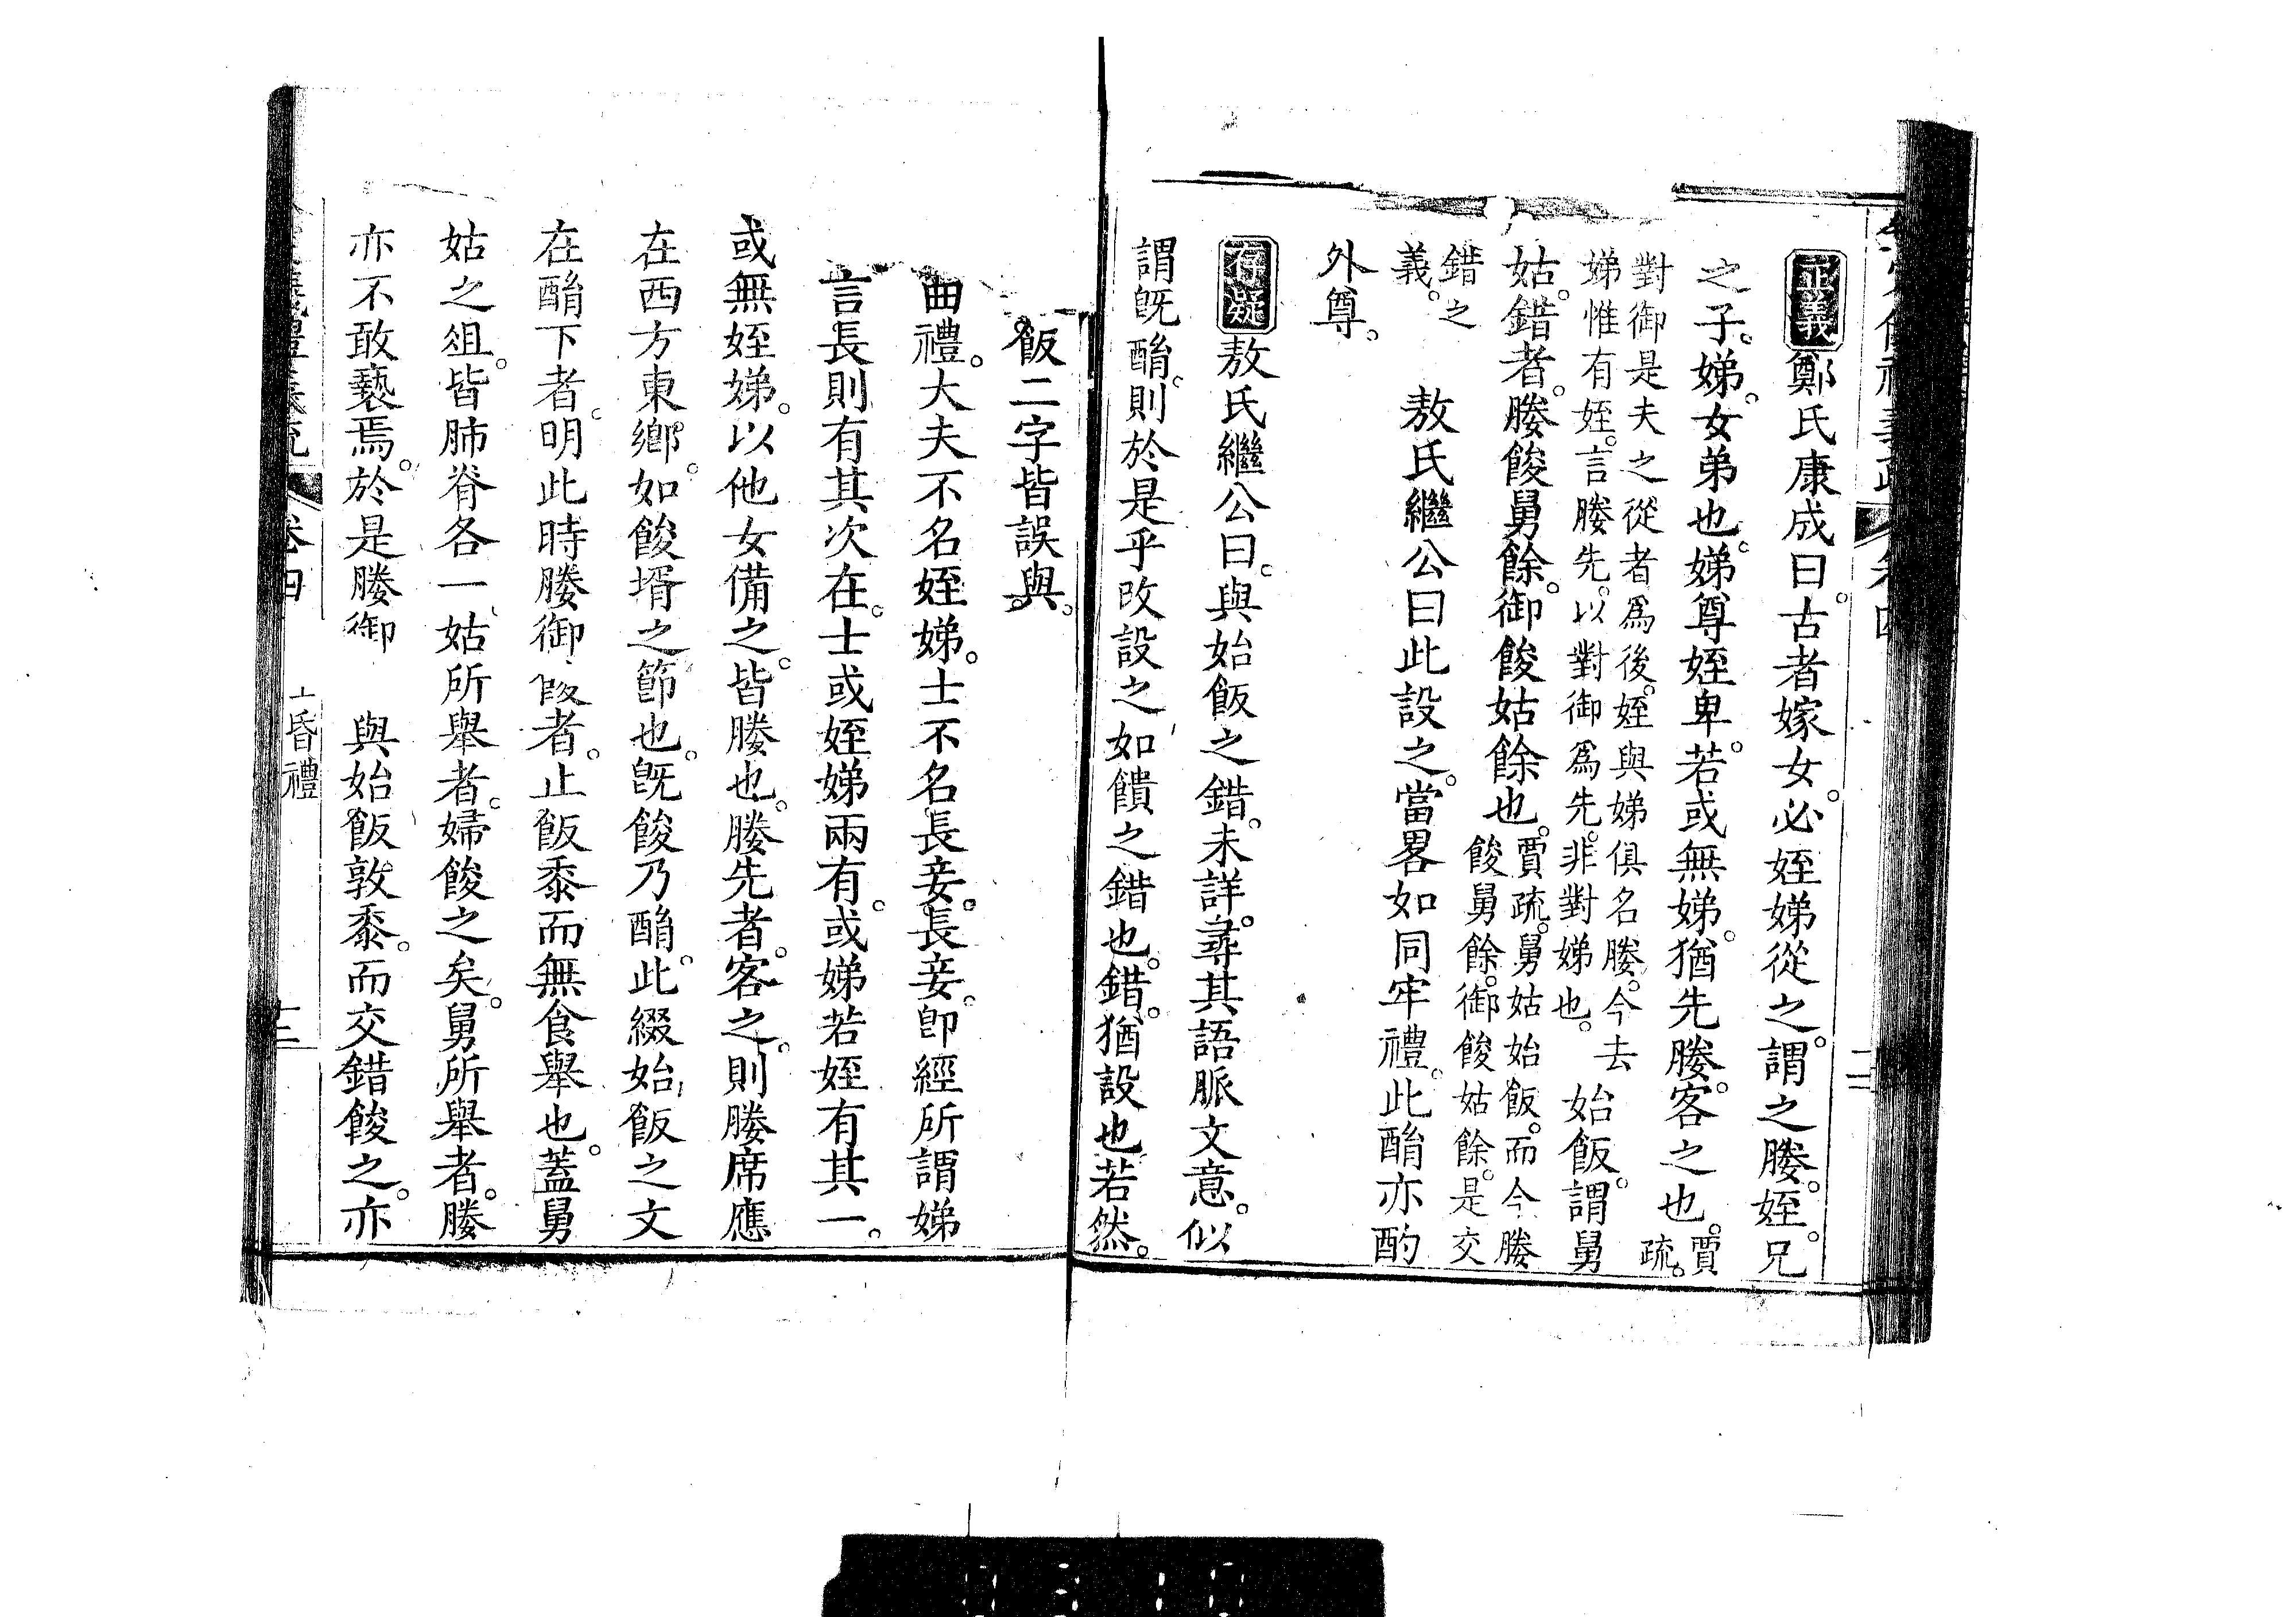 正義鄭氏康成曰。古者嫁女。必姪娣從之。謂之媵。姪。兄
之子。娣。女弟也。娣尊姪卑。若或無娣。猶先媵。客之也。賈疏。
對御是夫之從者為後。姪與娣俱名媵。今去
娣惟有姪。言媵先。以對御為先。非對娣也。始飯。謂舅
姑。錯者。媵餕舅餘。御餕姑餘也。賈疏。舅姑始飯。而今媵
餕舅餘。御餕姑餘。是交
錯之
義。
敖氏繼公曰此設之。當畧如同牢禮。此酳亦酌
外尊。
存疑敖氏繼公曰。與始飯之錯。未詳。尋其語脈文意。似
謂旣酳。則於是乎改設之如饋之錯也。錯。猶設也若然。
飯二字皆誤與。
曲禮。大夫不名姪娣。士不名長妾。長妾。卽經所謂娣
言長則有其次在。士或姪娣兩有。或娣若姪有其一。
或無姪娣。以他女備之。皆媵也。媵先者。客之。則媵席應
在西方東鄉。如餕壻之節也。旣餕乃酳。此綴始飯之文
在酳下者。明此時媵御餕者。止飯黍而無食舉也。蓋舅
姑之俎。皆肺脊各一、姑所舉者。婦餕之矣。舅所舉者。媵
亦不敢褻焉。於是媵御 與始飯敦黍。而交錯餕之。亦
卷四
士昏禮